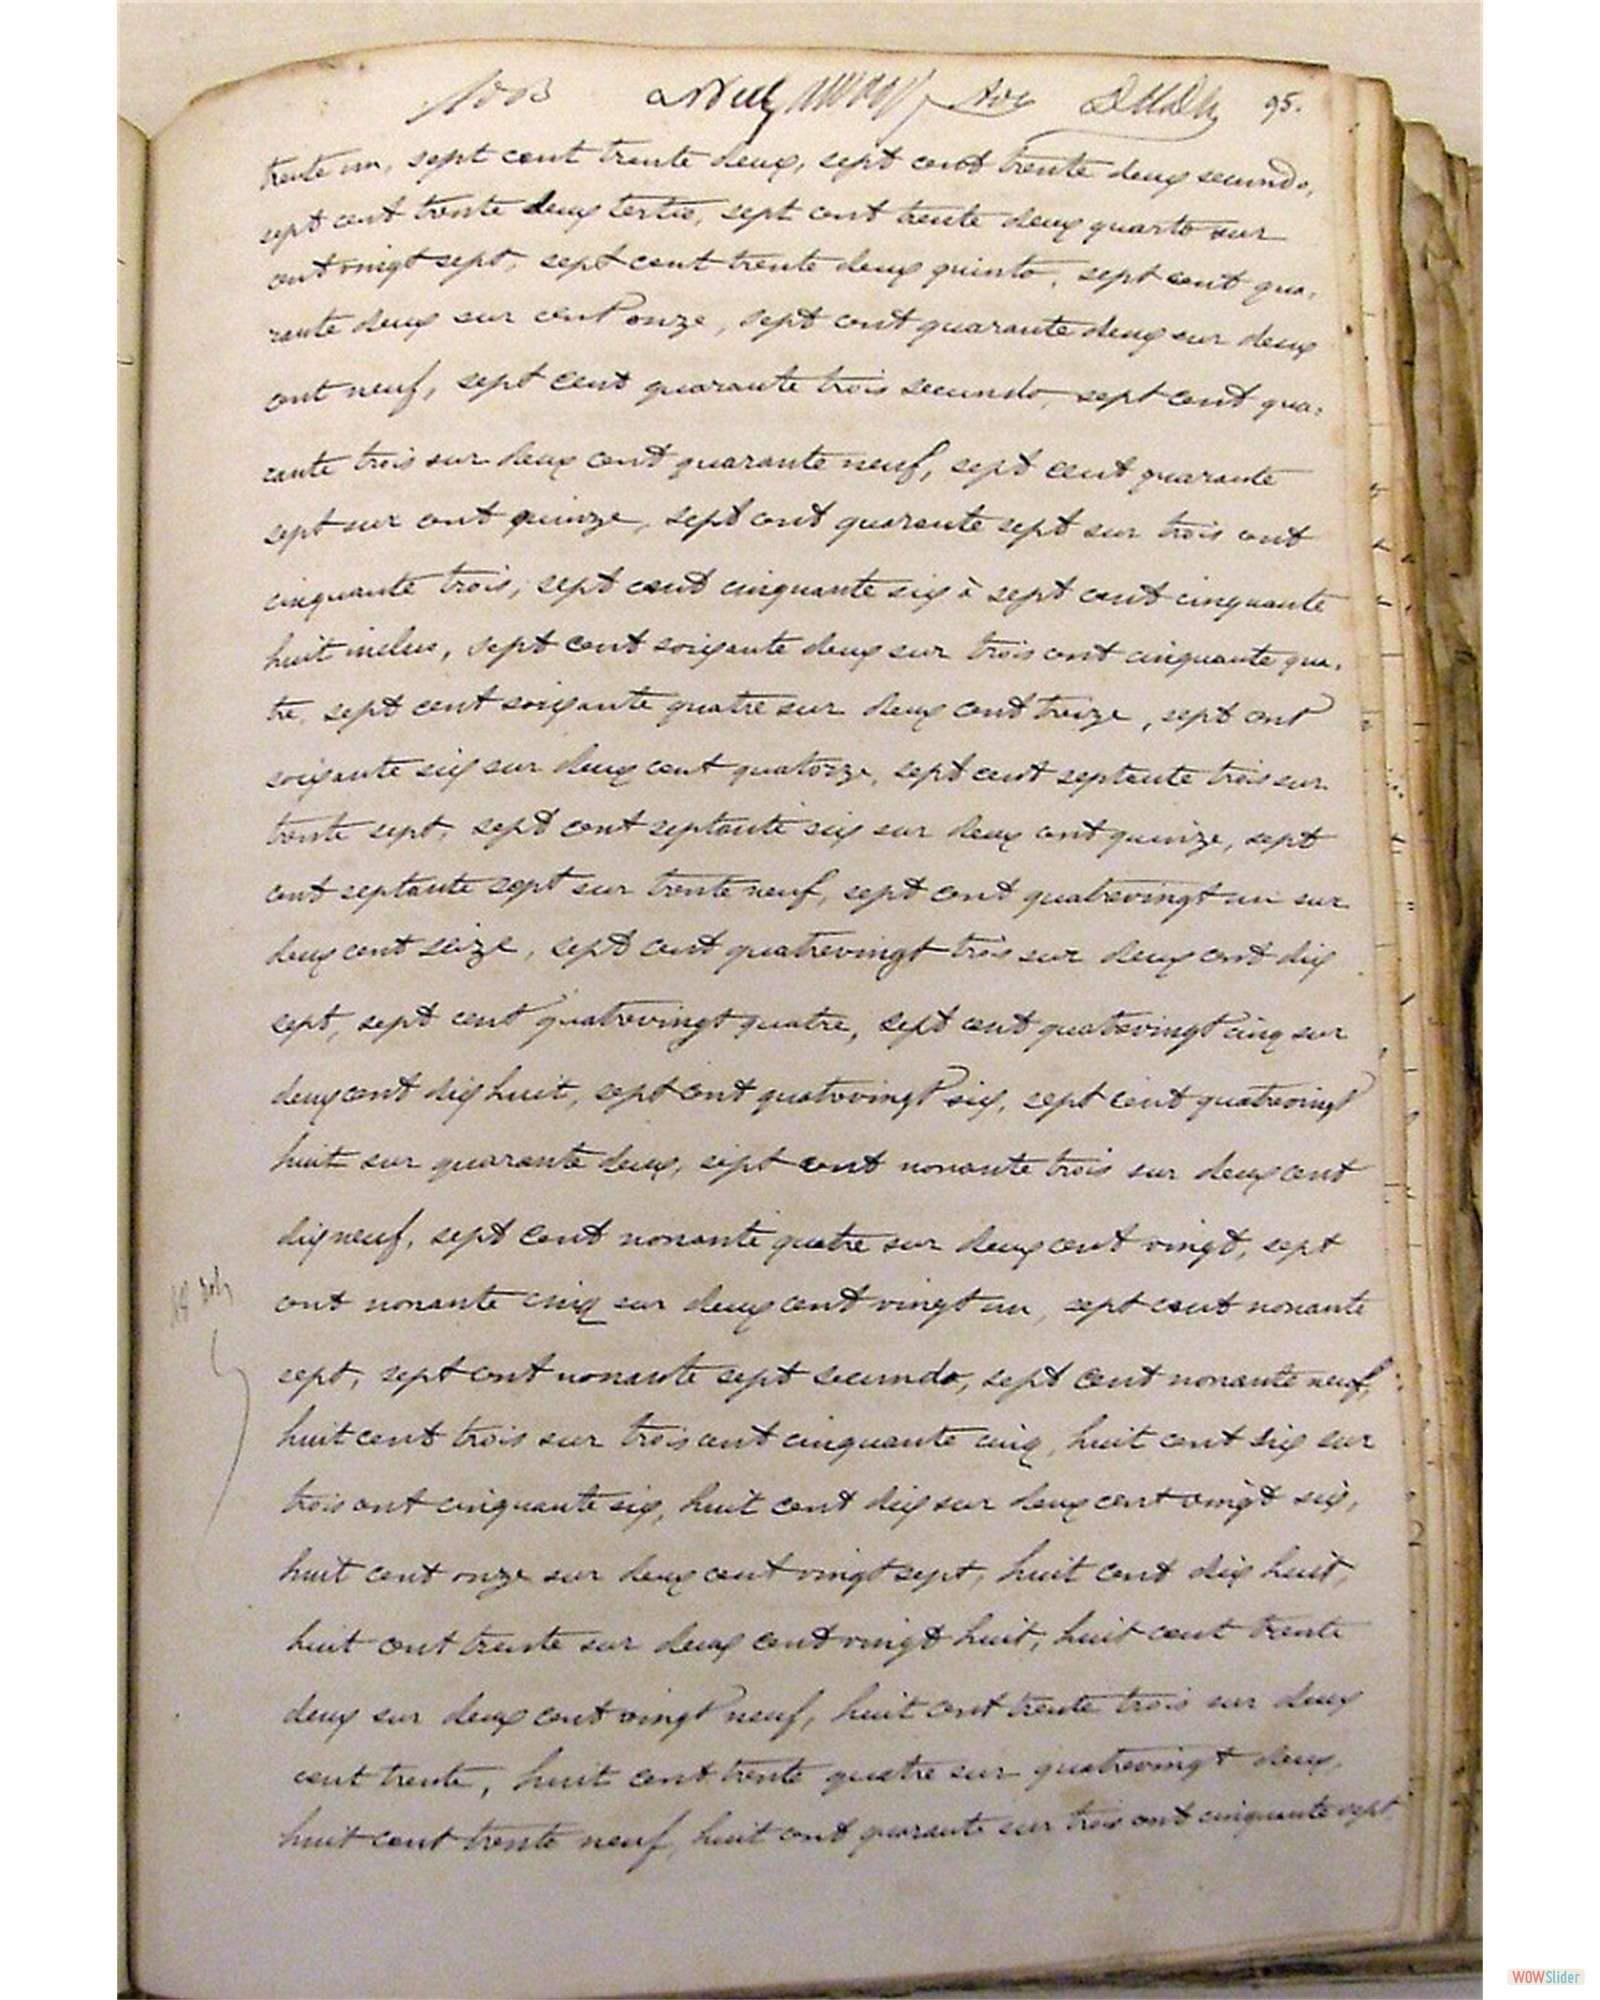 95.
trente un, sept cent trente deux, sept cent trente deux secundo,
sept cent trente deux tertio, sept cent trente deux quarto sur
cent vingt sept, sept cent trente deux quinto, sept cent qua-
rante deux sur cent onze, sept cent quarante deux sur deux
cent neuf, sept cent quarante trois secundo, sept cent qua-
rante trois sur deux cent quarante neuf, sept cent quarante
sept sur cent quinze, sept cent quarante sept sur trois cent
cinquante trois, sept cent cinquante six à sept cent cinquante
huit inclus, sept cent soixante deux sur trois cent cinquante qua-
tre, sept cent soixante quatre sur deux cent treize, sept cent
soixante six sur deux cent quatorze, sept cent septante trois sur
trente sept, sept cent septante six sur deux cent quinze, sept
cent septante sept sur trente neuf, sept cent quatrevingt un sur
deux cent seize, sept cent quatrevingt trois sur deux cent dix
sept, sept cent quatrevingt quatre, sept cent quatrevingt cinq sur
deux cent dix huit, sept cent quatrevingt six, sept cent quatrevingt
huit sur quarante deux, sept cent nonante trois sur deux cent
dix neuf, sept cent nonante quatre sur deux cent vingt, sept
cent nonante cinq sur deux cent vingt un, sept cent nonante
sept, sept cent nonante sept secundo, sept cent nonante neuf,
huit cent trois sur trois cent cinquante cinq, huit cent six sur
trois cent cinquante six, huit cent dix sur deux cent vingt six,
huit cent onze sur deux cent vingt sept, huit cent dix huit,
huit cent trente sur deux cent vingt huit, huit cent trente
deux sur deux cent vingt neuf, huit cent trente trois sur deux
cent trente, huit cent trente quatre sur quatrevingt deux,
huit cent trente neuf, huit cent quarante sur trois cent cinquante sept
WOWSlider